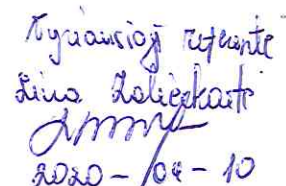 Vyriausioji referentė
Lina Zalieckaitė
2020-04-10